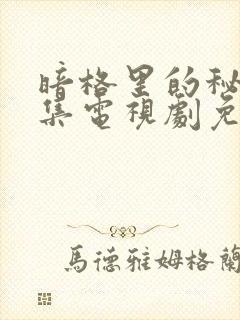 暗格里的秘
集電視劇免
馬德雅姆格蘭